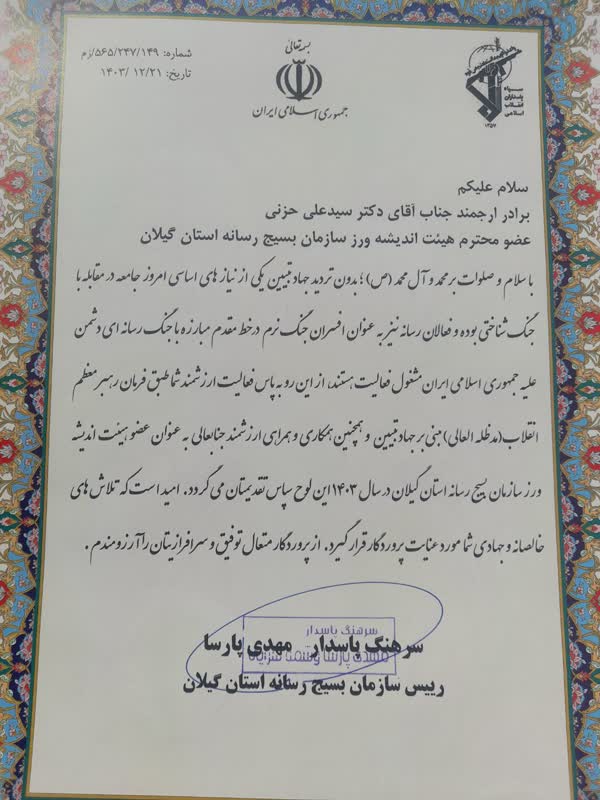 بسمه تعالی
جمهوری اسلامی ایران
شماره: ۵۶۵/۲۴۷/۱۴۹/زم
تاریخ: ۱۴۰۳/ ۱۲/۲۱
سپاه
پاسداران
انقلاب
اسلامی
۱۳۵۷
سلام علیکم
برادر ارجمند جناب آقای دکتر سیدعلی حزنی
عضو محترم هیئت اندیشه ورز سازمان بسیج رسانه استان گیلان
با سلام و صلوات بر محمد و آل محمد (ص)؛ بدون تردید جهاد تبیین یکی از نیاز های اساسی امروز جامعه در مقابله با
جنگ شناختی بوده و فعالان رسانه نیز به عنوان افسران جنگ نرم در خط مقدم مبارزه با جنگ رسانه ای دشمن
علیه جمهوری اسلامی ایران مشغول فعالیت هستند، از این رو به پاس فعالیت ارزشمند شما طبق فرمان رهبر معظم
انقلاب(مدظله العالی) مبنی بر جهاد تبیین و همچنین همکاری و همراهی ارزشمند جنابعالی به عنوان عضو هیئت اندیشه
ورز سازمان بسیج رسانه استان گیلان در سال ۱۴۰۳ این لوح سپاس تقدیمتان می گردد. امید است که تلاش های
خالصانه و جهادی شما مورد عنایت پروردگار قرار گیرد. از پروردگار متعال توفیق و سرافرازیتان را آرزومندم.
سرهنگ پاسدار
سرهنگ پاسدار مهدی پارسا
رییس سازمان بسیج رسانه استان گیلان